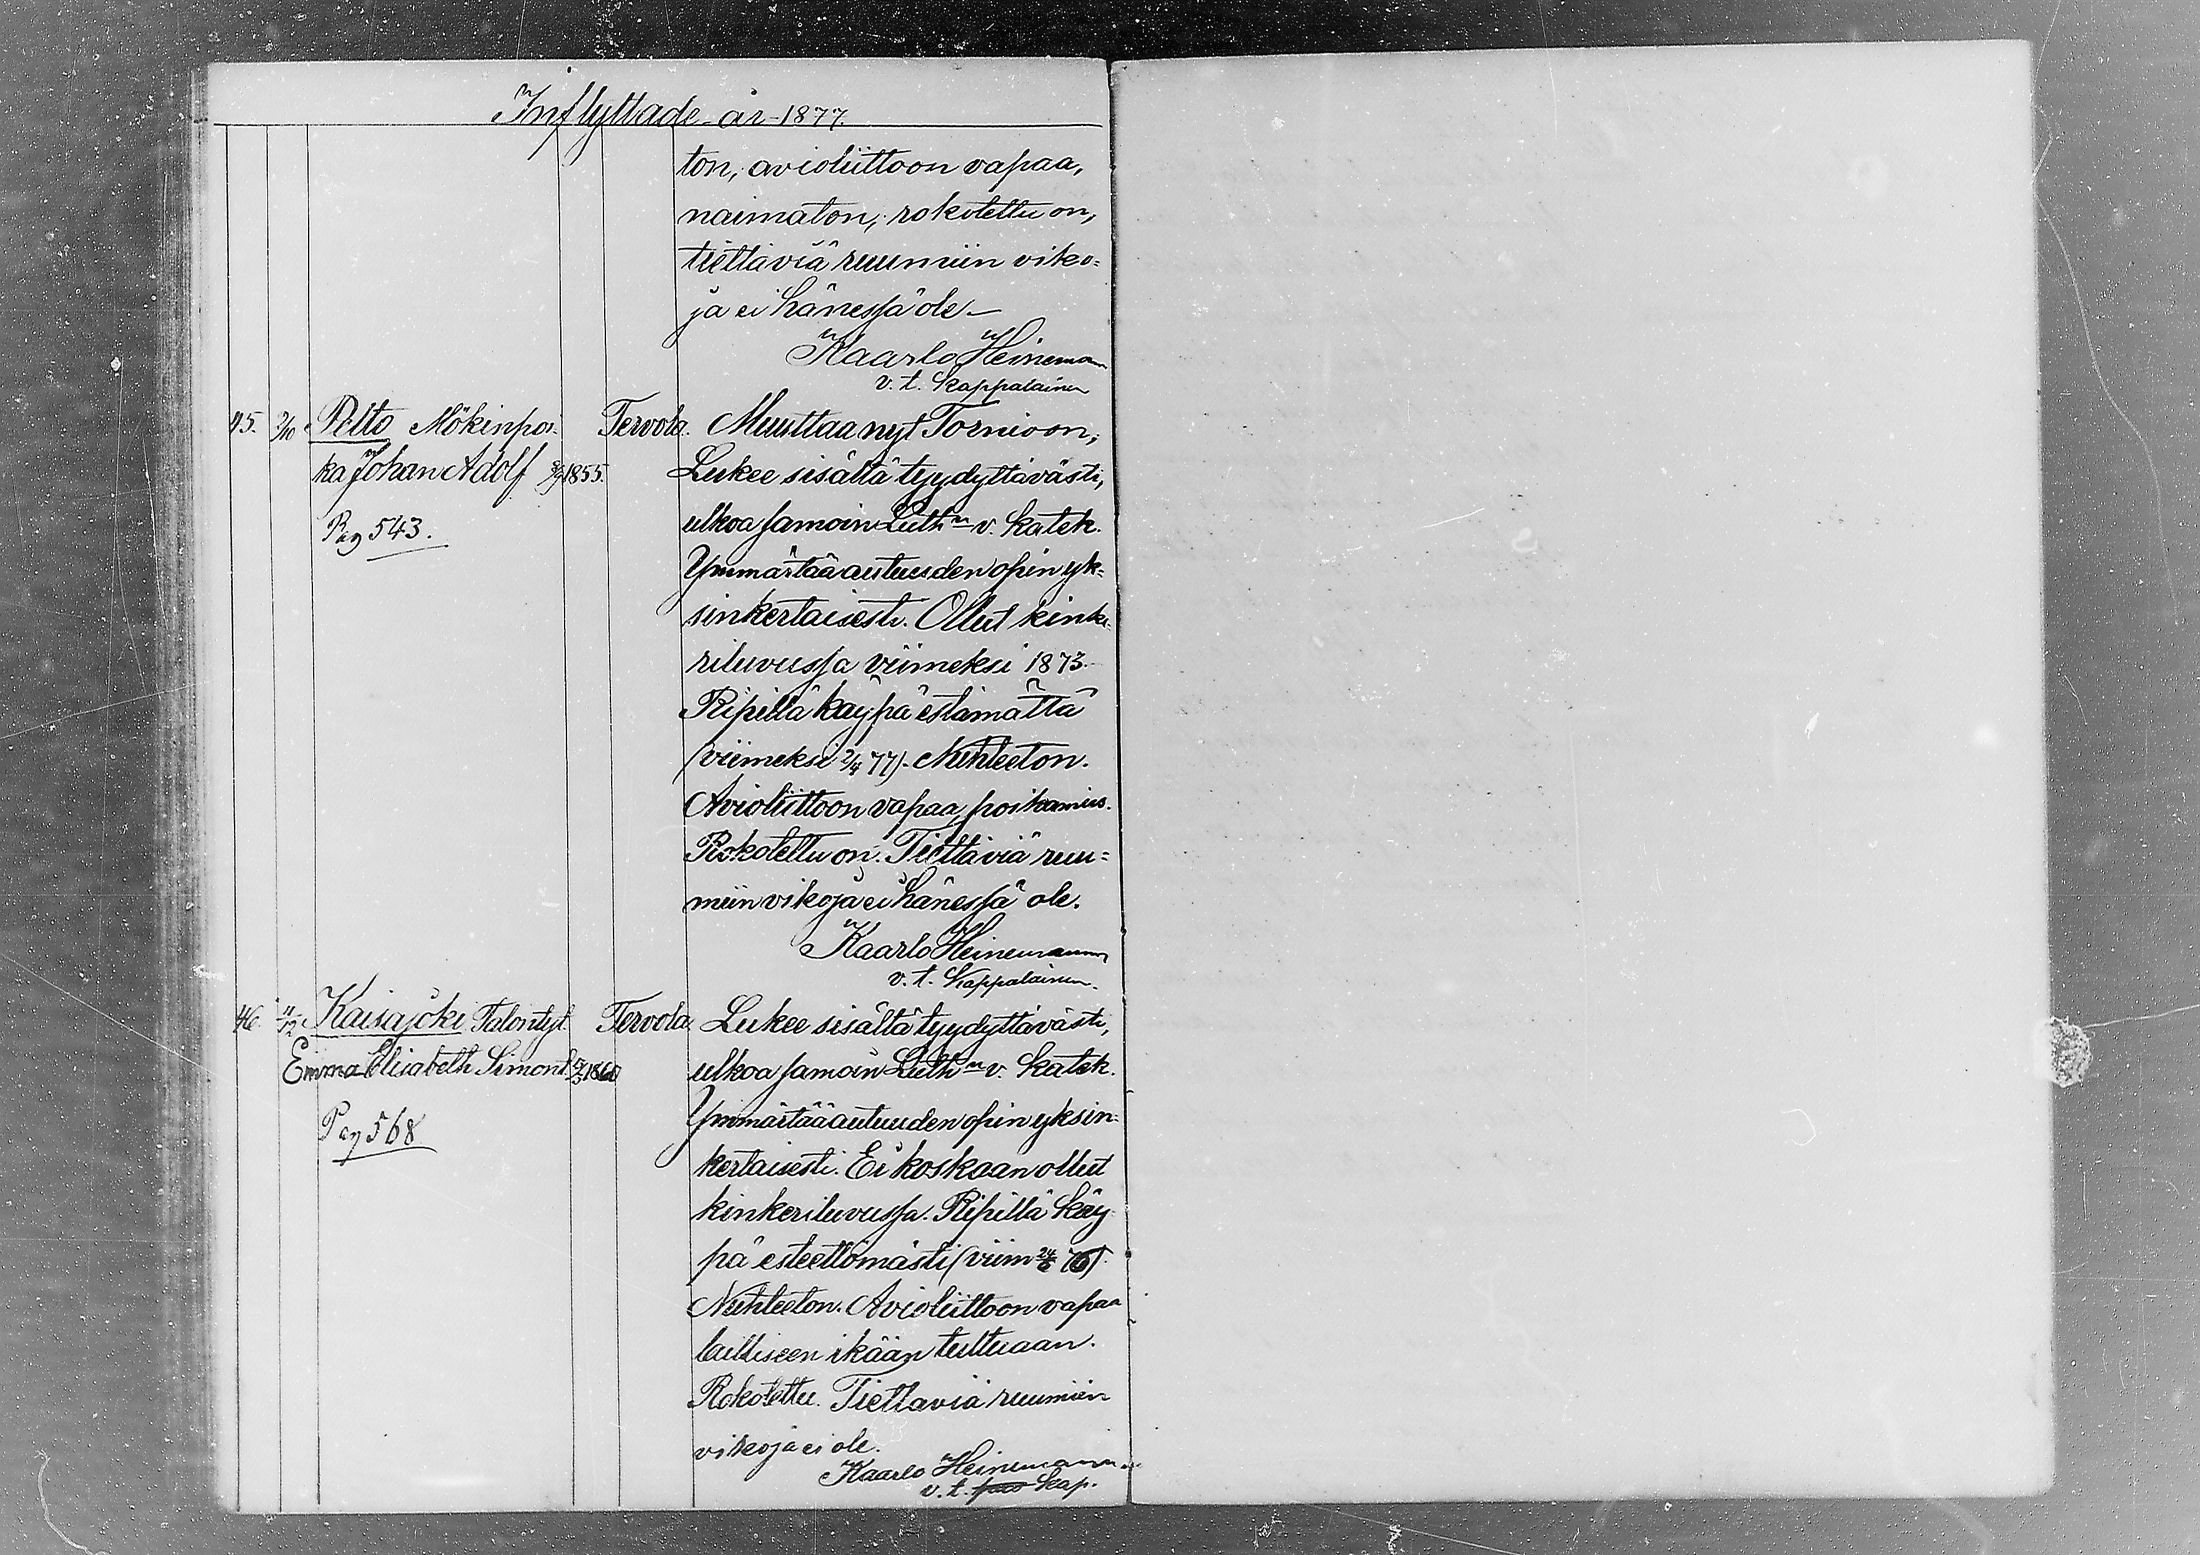 Inflyttade år 1877.
ton, avioliittoon vapaa,
naimaton, rokotettu on,
tiettäviä ruumiin viko-
ja ei hänessä ole.—
Kaarlo Heineman
v. t. Kappalainen
45. 2/10 Pelto Mökinpoi- Tervola. Muuttaa nyt Tornioon,
ka Johan Adolf 1855. Lukee sisältä tyydyttävästi,
ulkoa samoin Luth n v. katek.
Pag 543.
Ymmärtää autuuden opin yk-
sinkertaisesti. Ollut kinke-
riluvussa viimeksi 1873.
Ripillä käypä estämättä
(viimeksi 2/4 77). Nuhteeton.
Avioliittoon vapaa, poikamies.
Rokotettu on. Tiettäviä ruu-
miin vikoja ei hänessä ole.
Kaarlo Heinemann
v. t. Kappalainen.
46. 11/12 Kaisajoki Talontyt. Tervola. Lukee sisältä tyydyttävästi,
Emma Elisabeth Simont. 1860 ulkoa samoin Luth n v. katek.
Pag 568
Ymmärtää autuuden opin yksin-
kertaisesti. Ei koskaan ollut
kinkeriluvussa. Ripillä käy-
pä esteettömästi (viim 24/6 76).
Nuhteeton. Avioliittoon vapaa
lailliseen ikään tultuaan.
Rokotettu. Tiettäviä ruumiin
vikoja ei ole.
Kaarlo Heinemann
v. t. kap.